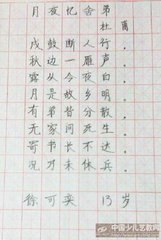 月夜忆舍弟
杜甫
戍鼓断人行，
秋边一雁声。
露从今夜白，
月是故乡明。
有弟皆分散，
无家问死生。
寄书长不达，
况乃未休兵。
徐可奕 13岁
中国少儿艺教网